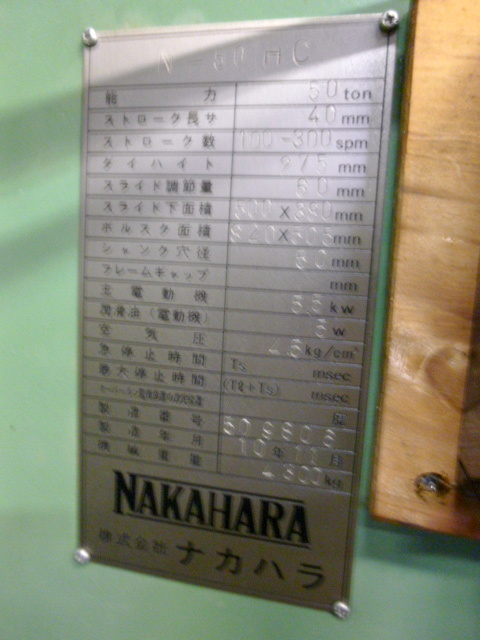 N-50HC
能力 50 ton
ストローク長サ 40 mm
ストローク数 100-300 spm
ダイハイト 275 mm
スライド調節量 60 mm
スライド下面積 mm
ボルスタ面積 mm
シャンク穴径 50 mm
フレームギャップ mm
主電動機 5.5 kw
潤滑油(電動機) w
空気圧 kg/cm²
急停止時間 Ts msec
最大停止時間 (Tℓ+Ts) msec
製造番号
製造年月 10年11月
機械重量 4300 kg
NAKAHARA
株式会社 ナカハラ